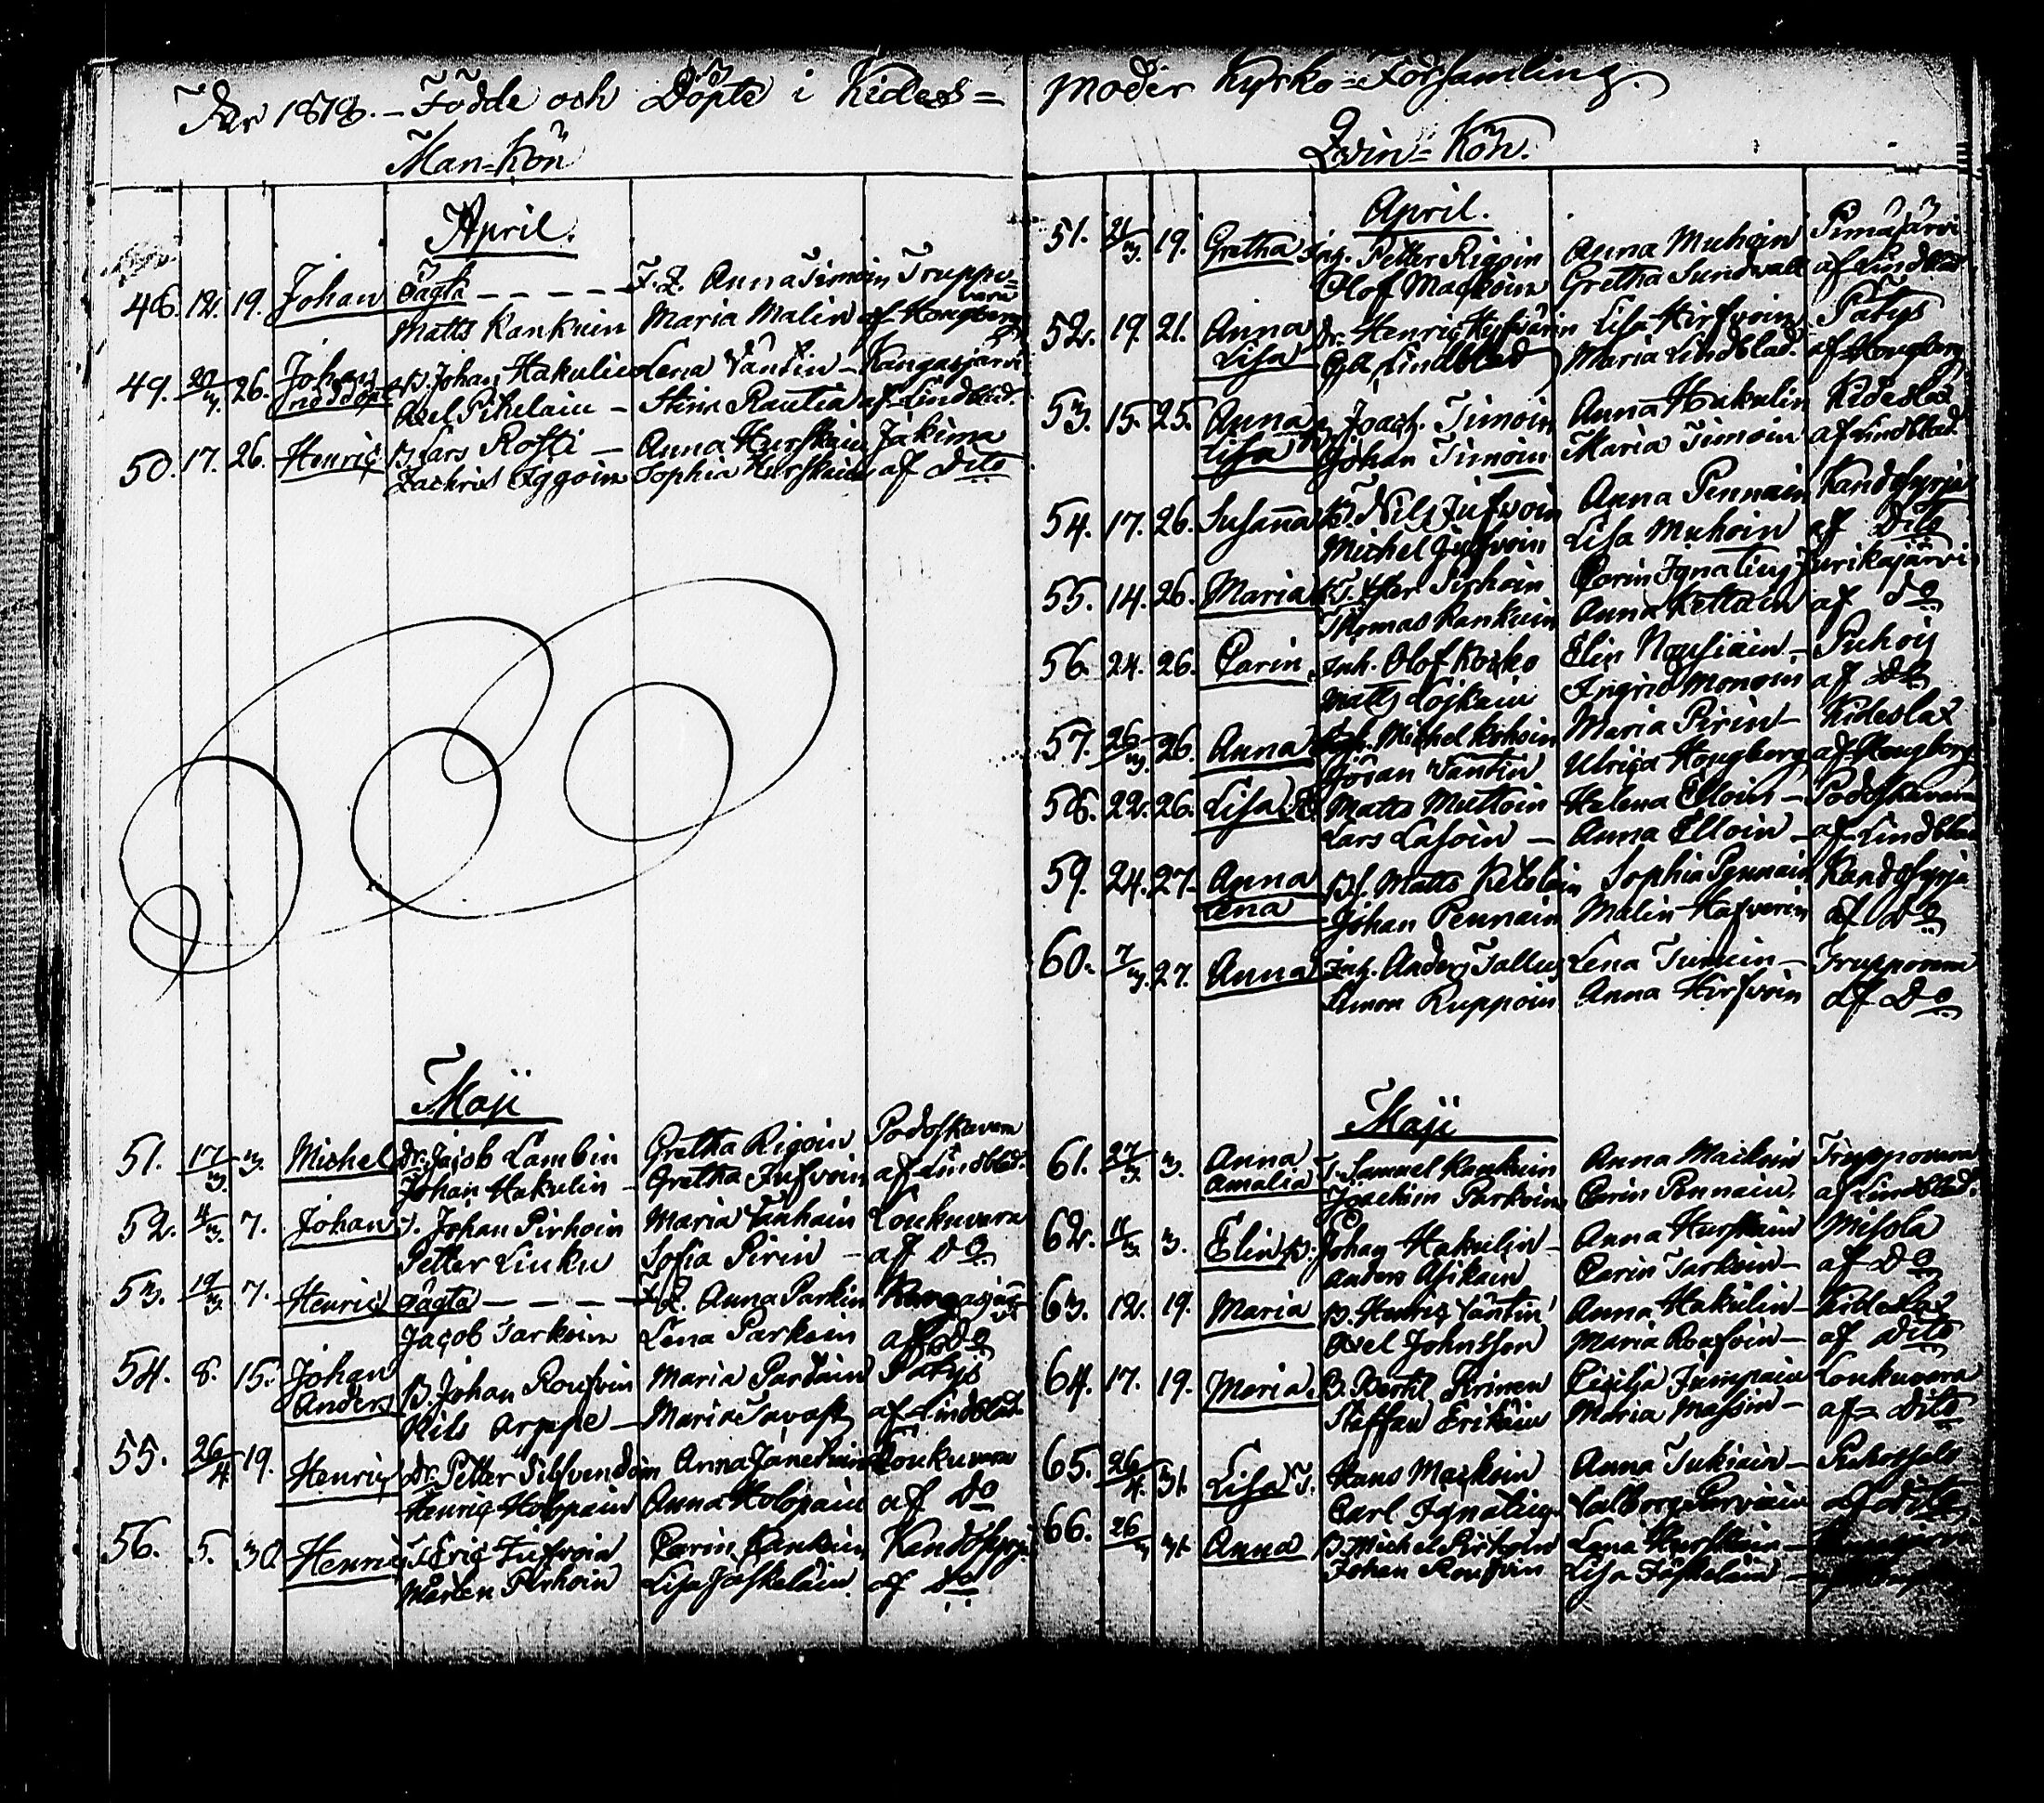 År 1818. – Födde och Döpte i Kides=
Man=Kön
April.
48. 12. 19. Johan Oägta – – – – – F. Z. Anna Timoin Truppo=
vara
Matts Kankuin Maria Malin af Hougberg
49. 29/3. 26. Johan B. Johan Hakulin Lena Väntin – Kangasjärvi
nöddöpt Axel Pikelain – Stina Rautia af Lindblad.
50. 17. 26. Henric B. Lars Rosti – Anna Hurskain Jakima
Zachris Iggoin Sophia Hurskain af Dito
Maji
51. 17/3. 3. Michel Dr. Jacob Lambin Gretha Rigoin Podoskavara
Johan Hakulin – Gretha Jufvoin af Lindblad.
52. 4/3. 7. Johan T. Johan Pirhoin Maria Vanhain Loukuvara
Petter Linku Sofia Pirin – af Do
53. 19/3. 7. Henric Oägta – – – – F. Z. Anna Parkin
Jacob Tarkoin Lena Parkoin af Do
54. 8. 15. Johan B. Johan Roufvin Maria Pardain Patys
Anders Nils Arppe – Maria Tavast af Lindblad.
55. 26/4. 19. Henric Dr. Petter Silfvendoin Anna Jänetuin Loukuvara
Henric Holopain Anna Holopain af Do
56. 5. 30. Henric T. Eric Jufvoin Carin Kankuin Kandosyrja
Mårten Pirhoin Lisa Jäskelain af Do
Moder Kyrko=Församling.
Qvin=Kön.
April.
51. 21/3. 19. Gretha Inh. Petter Rigoin Anna Muhoin Pimäjärvi
Olof Mackoin Gretha Sundvall af Lindblad
52. 19. 21. Anna Dr. Henric Hyfvärin Lisa Hirfvoin Patys
Lisa Lindblad Maria Lindblad. af Hougberg
53. 15. 25. Anna Joach. Timoin Anna Hakulin Kideslax
Lisa Johan Timoin Maria Timoin af Lindblad.
54. 17. 26. Susanna B. Nils Jufvoin Anna Pennain Kandosyrja
Michel Jufvoin Lisa Muhoin af Dito
55. 14. 26. Maria Pirhoin Carin Ignatius Jurikajärvi
Thomas Kankuin Anna Kettain af Do
56. 24. 26. Carin Inh. Olof Kosko Elin Nousiain – Puhois
Matts Loskain Ingrid Monoin af Do
57. 26/3. 26. Anna Inh. Michel Kohoin Maria Pirin – Kideslax
Johan Väntin Ulrica Hougberg af Hougberg
58. 22. 26. Lisa B. Matts Muttoin Helena Elloin – Podoskavara
Lars Lasoin – Anna Elloin – af Lindblad
59. 24. 27. Anna Bf. Matts Ketolain Sophia Pennain Kandosyrja
Lena Johan Pennain Malin Hafverin af Do
60. 7/3. 27. Anna Inh. Anders Tallus Lena Timoin – Truppovara
Simon Ruppoin Anna Hirfvoin af Do
Maji
61. 27/3. 3. Anna T. Samuel Kankuin Anna Mackoin Truppovara
Amalia Joachim Parkoin Carin Pennain. af Lindblad.
62. 11/3. 3. Elin B. Johan Hakulin – Anna Hurskain Misola
Anders Asikain Carin Turkoin – af Do
63. 12. 19. Maria B. Henric Väntin Anna Hakulin – Kideslax
Axel Johnsson Maria Roufvoin – af Dito
64. 17. 19. Maria. B. Bertil Pirinen Cicilja Jumpain Loukuvara
Staffan Eriksin Maria Massin – af Dito
65. 26/4. 31. Lisa T. Hans Mackoin Anna Tukiain – Puhossalo
Carl Ignatius Valborg Parviain af Dito
66. 26/3 31. Anna B. Michel Pirhoin Lena Hurskain –
Johan Roufvin Lisa Jäskelain –